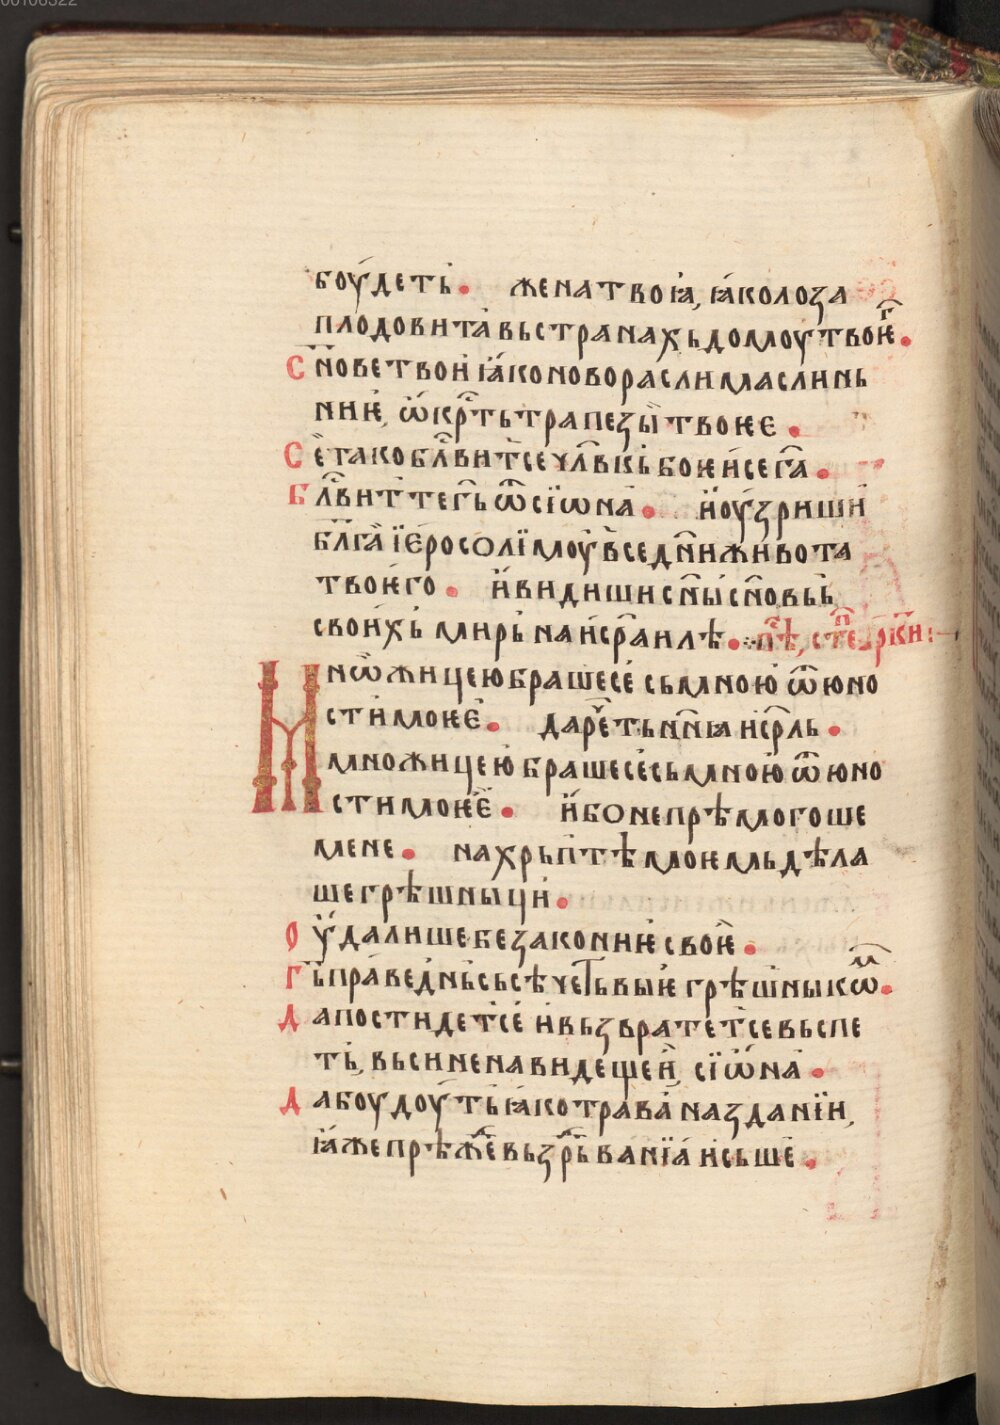 00106322
боу́деть. жена твоꙗ̀, ꙗ҆́ко лоза
плодовита̀ вь странахь домоу̀ твоѥⷢ҇.
С҃нове твои҆ ꙗ҆́ко новорасли маслинь
ниѥ, ѡ҆́крⷭ҇ть трапезы̀ твоѥѥ.
Се̏ тако блⷭ҇витсе чл҃вкь бое҆и́ се га҃.
Бл҃вит те гь҃ ѿ сїѡна̀. и҆ оу́зриши
бл҃гаа̀ їе҆росолїмоу̀ все дн҃и живота
твоѥ҆го. и҆ видиши сн҃ы сн҃овь
своихь̀ мирь на и҆сраилѣ. пⷭ҇ѣ, степе рк҃и:
Мнѡ҆жицею брашесе́ сь мною̀ ѿ юно
сти моѥѐ. да рⷱ҇еть нн҃ꙗ и҆срⷭ҇ль.
множицею̀ брашесе́ сь мною̀ ѿ юно
сти моѥѐ. и҆́бо не прѣмогоше
мене. на хрьптѣ моѥмь дѣла
ше грѣшныци̏.
Оу҆́далише безакониѥ своѐ.
Гь҃ праведнь̀ сьсѣчеть выѥ грѣшныкѡⷨ.
Да постидетсе́ и҆ вьзвратетсе вьспе
ть, вьси ненавидещеи̏, сїѡ́на̀.
Да боудоу́ть ꙗ҆ко трава̀ на зданїи,
ꙗ҆́же прѣжⷣе вьзрываниꙗ̀ и҆сьше̏.